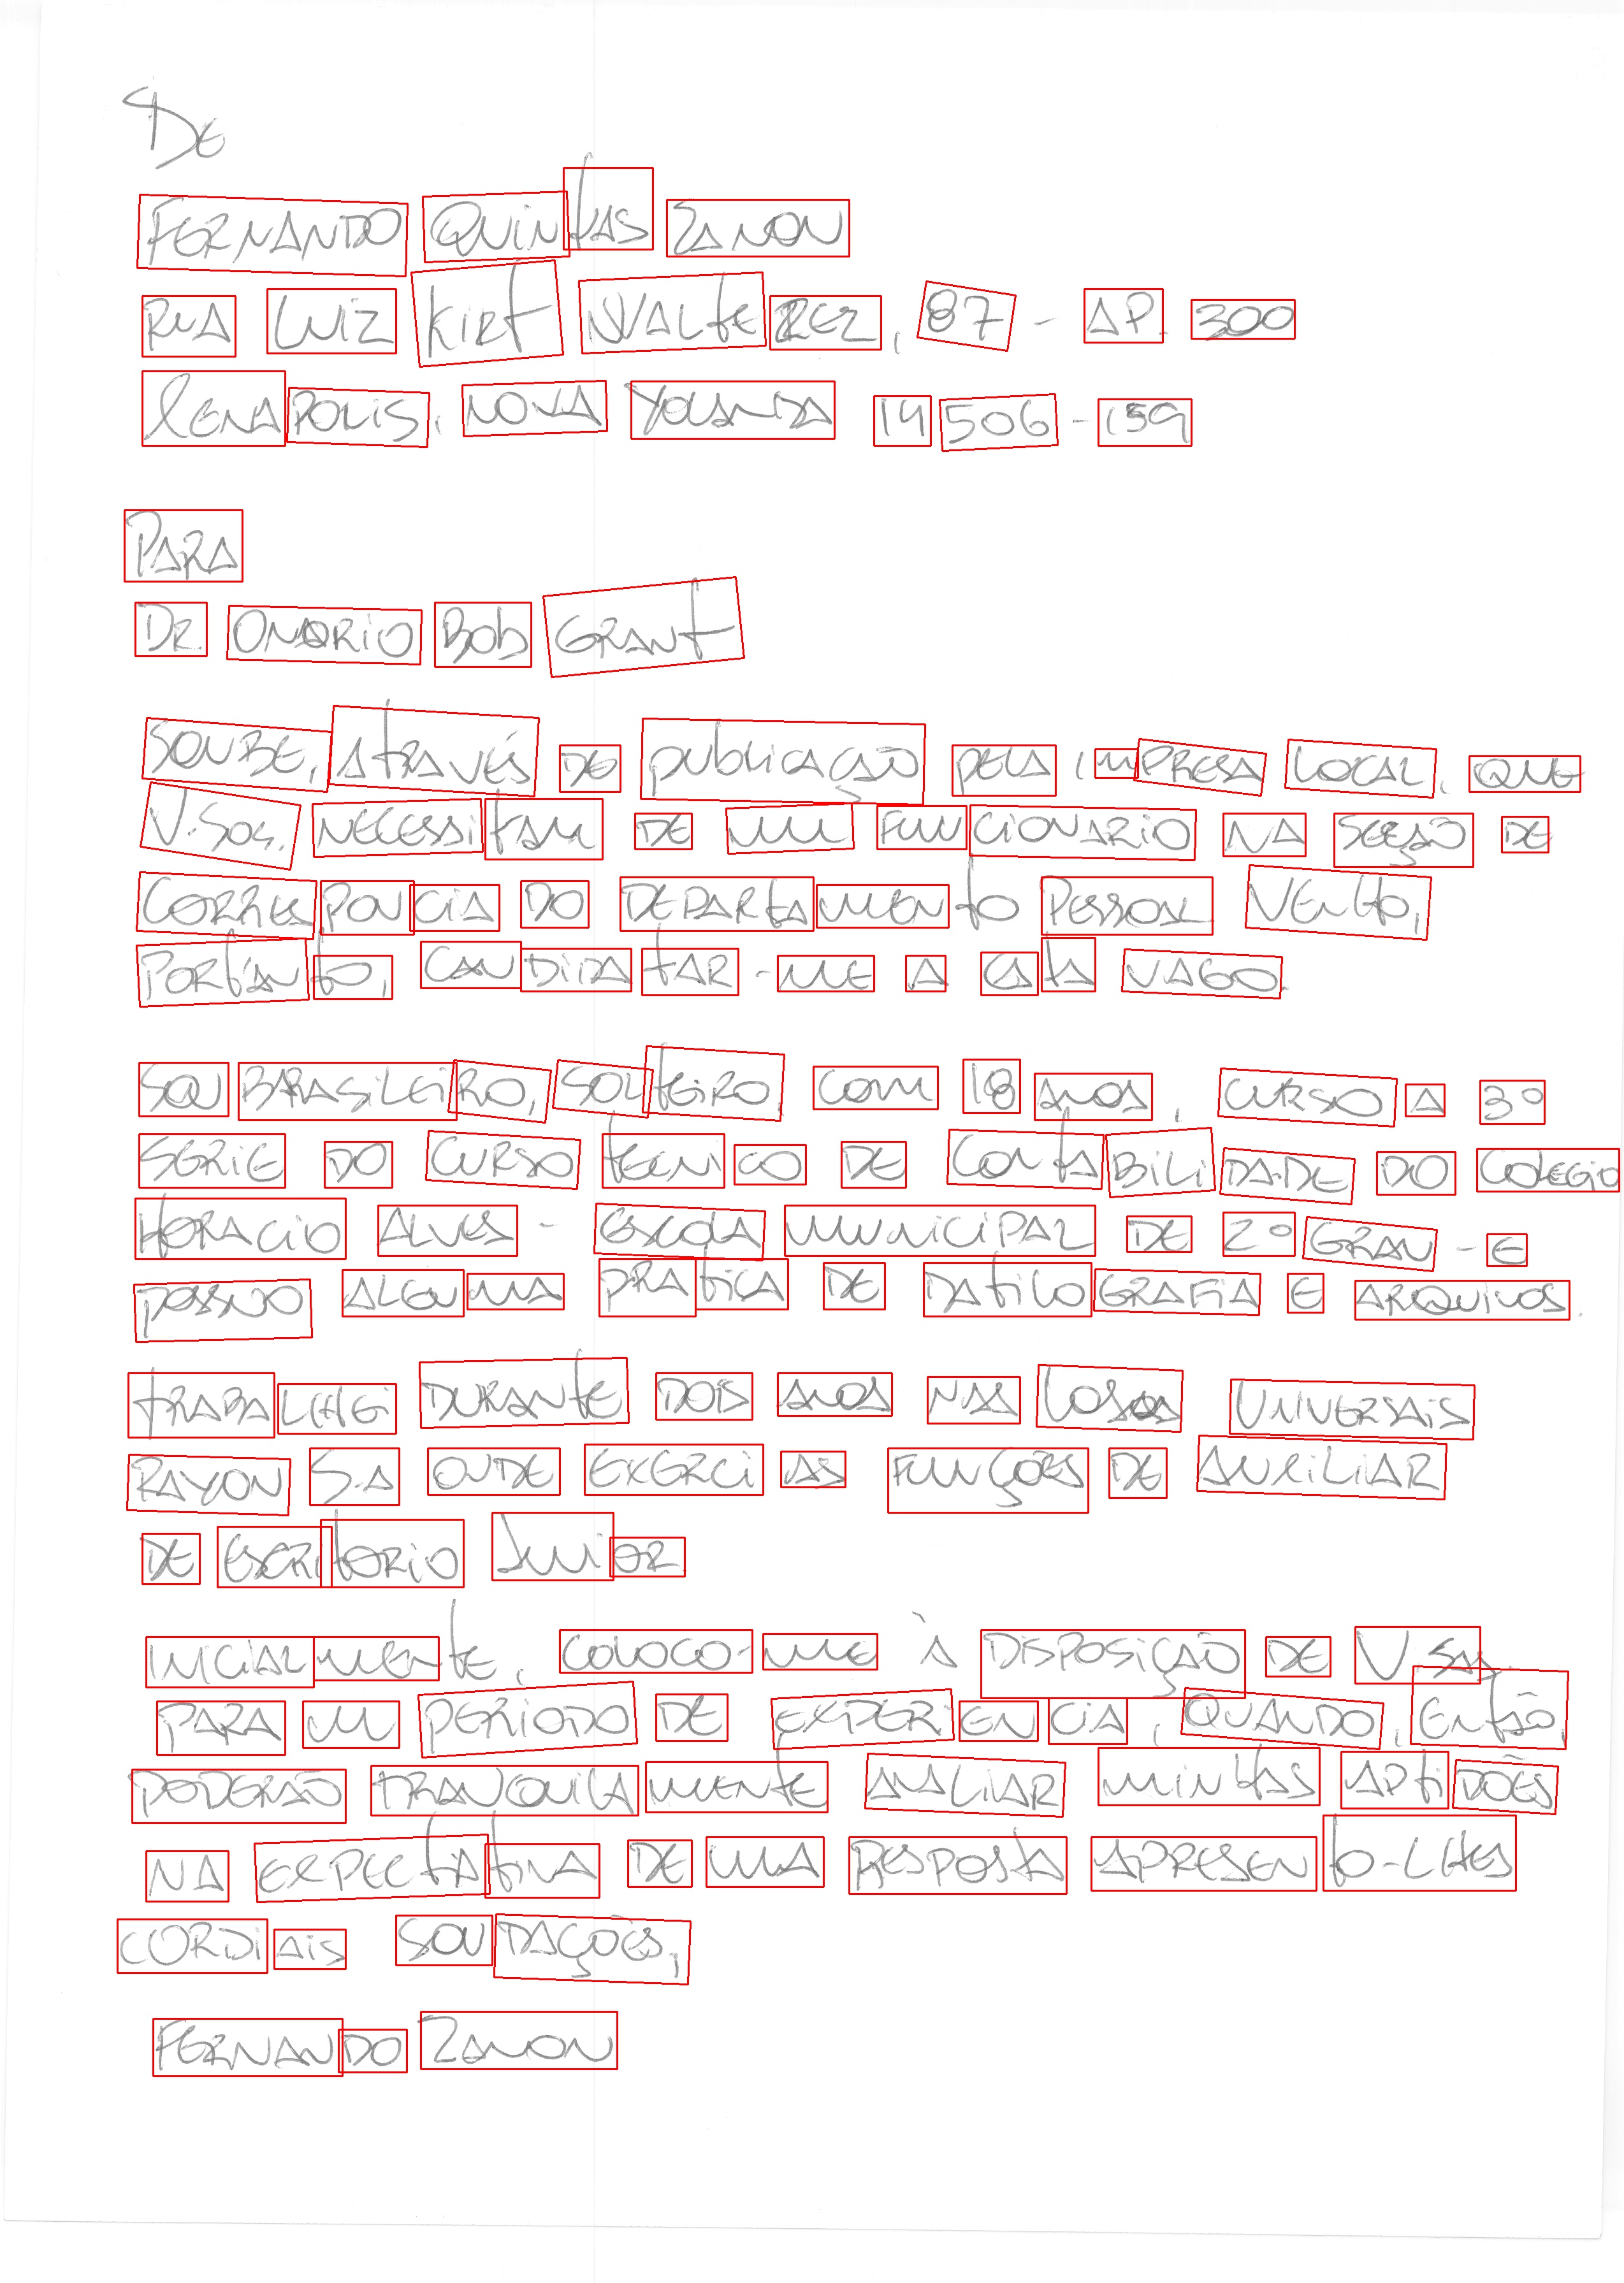 De
FERNANDO QUINTAS ZANON
RUA LUIZ KIRT WALTEREZ, 87 - AP. 300
LENAPOLIS, NOVA YOLANDA 14506-159
PARA
DR. ONORIO BOB GRANT
SOUBE, ATRAVÉS DE PUBLICAÇÃO PELA IMPRESA LOCAL, QUE
V.Sas. NECESSITAM DE UM FUNCIONARIO NA SEÇÃO DE
CORRESPONCIA DO DEPARTAMENTO PESSOAL VENHO,
PORTANTO, CANDIDATAR-ME A ESTA VAGO.
SOU BARASILEIRO, SOLTEIRO, COM 18 ANOS, CURSO A 3º
SERIE DO CURSO TECNICO DE CONTABILIDADE DO COLEGIO
HORACIO ALVES - ESCOLA MUNICIPAL DE 2º GRAU - E
POSSUO ALGUMA PRATICA DE DATILOGRAFIA E ARQUIVOS.
TRABALHEI DURANTE DOIS ANOS NAS LOSAS UNIVERSAIS
RAYON S.A ONDE EXERCI AS FUNÇÕES DE AUXILIAR
DE ESCRITORIO JUNIOR
INICIALMENTE, COLOCO-ME À DISPOSIÇÃO DE V.SAS.
PARA UM PERÍODO DE EXPERIENCIA, QUANDO, ENTÃO,
PODERÃO TRANQUILAMENTE AVALIAR MINHAS APTIDÕES
NA EXPECTATATIVA DE UMA RESPOSTA APRESENTO-LHES
CORDIAIS SOUDAÇÕES,
FERNANDO ZANON